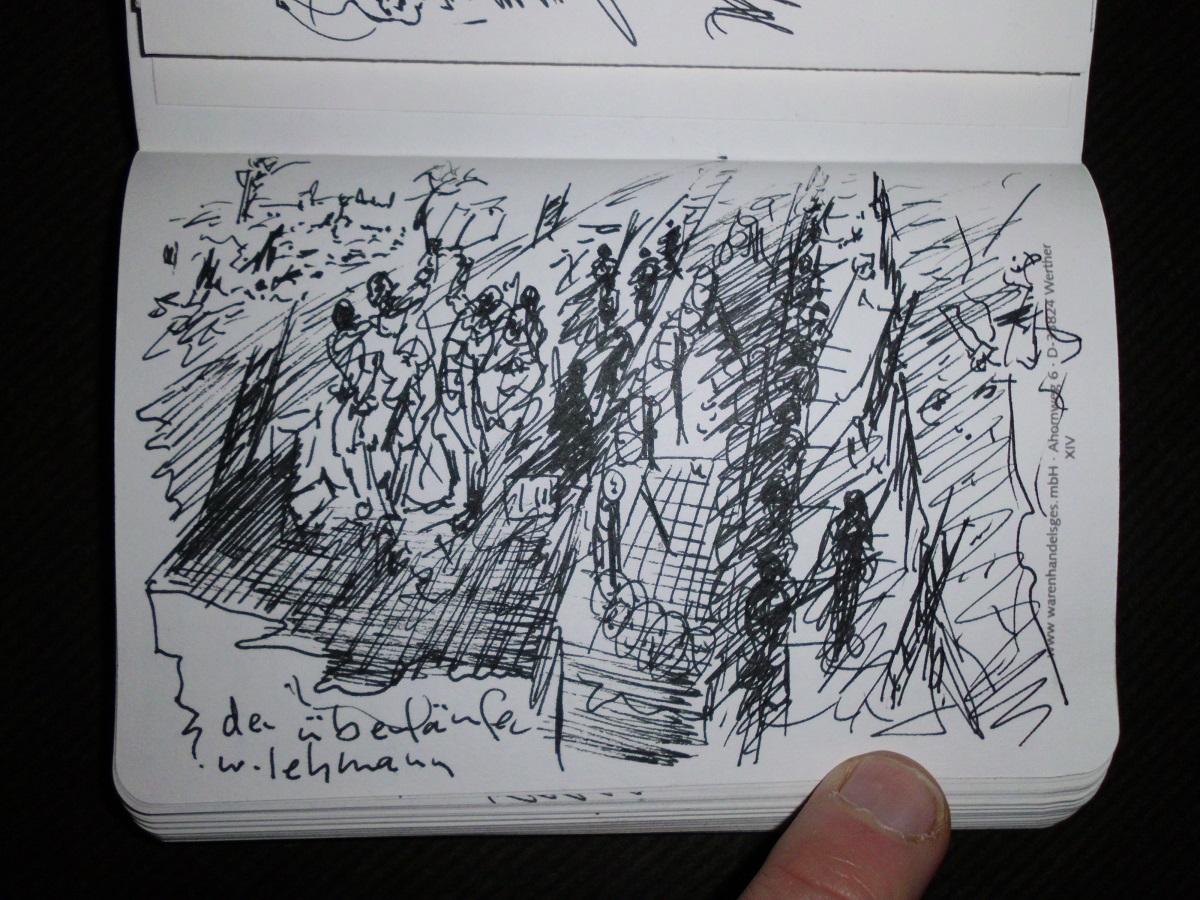 der überläufer
w. lehmann
www warenhandelsges. mbH · Ahornweg 6 · D-
824 Werther
XIV